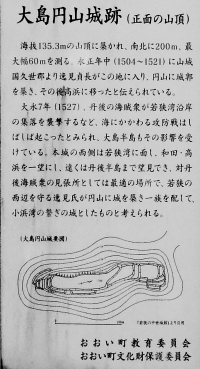 大島円山城跡 (正面の山頂)
海抜135.3mの山頂に築かれ、南北に200m、最
大幅60mを測る。永正年中（1504～1521）に山城
国久世郡より逸見自長がこの地に入り、円山に城郭
を築き、その後高浜に移ったと伝えられている。
大永7年（1527）、丹後の海賊衆が若狭湾沿岸
の集落を襲撃するなど、海にかかわる攻防戦はし
ばしば起こったとみられ、大島半島もその影響を受
けている。本城の西側は若狭湾に面し、和田・高
浜を一望にし、遠くは丹後半島まで望見でき、対丹
後海賊衆の見張所としては最適の場所で、若狭の
西辺を守る逸見氏が円山に城を築き一族を配して、
小浜湾の繋ぎの城としたものと考えられる。
(大島円山城要図)
「若狭の中世城館」より引用
おおい町教育委員会
おおい町文化財保護委員会